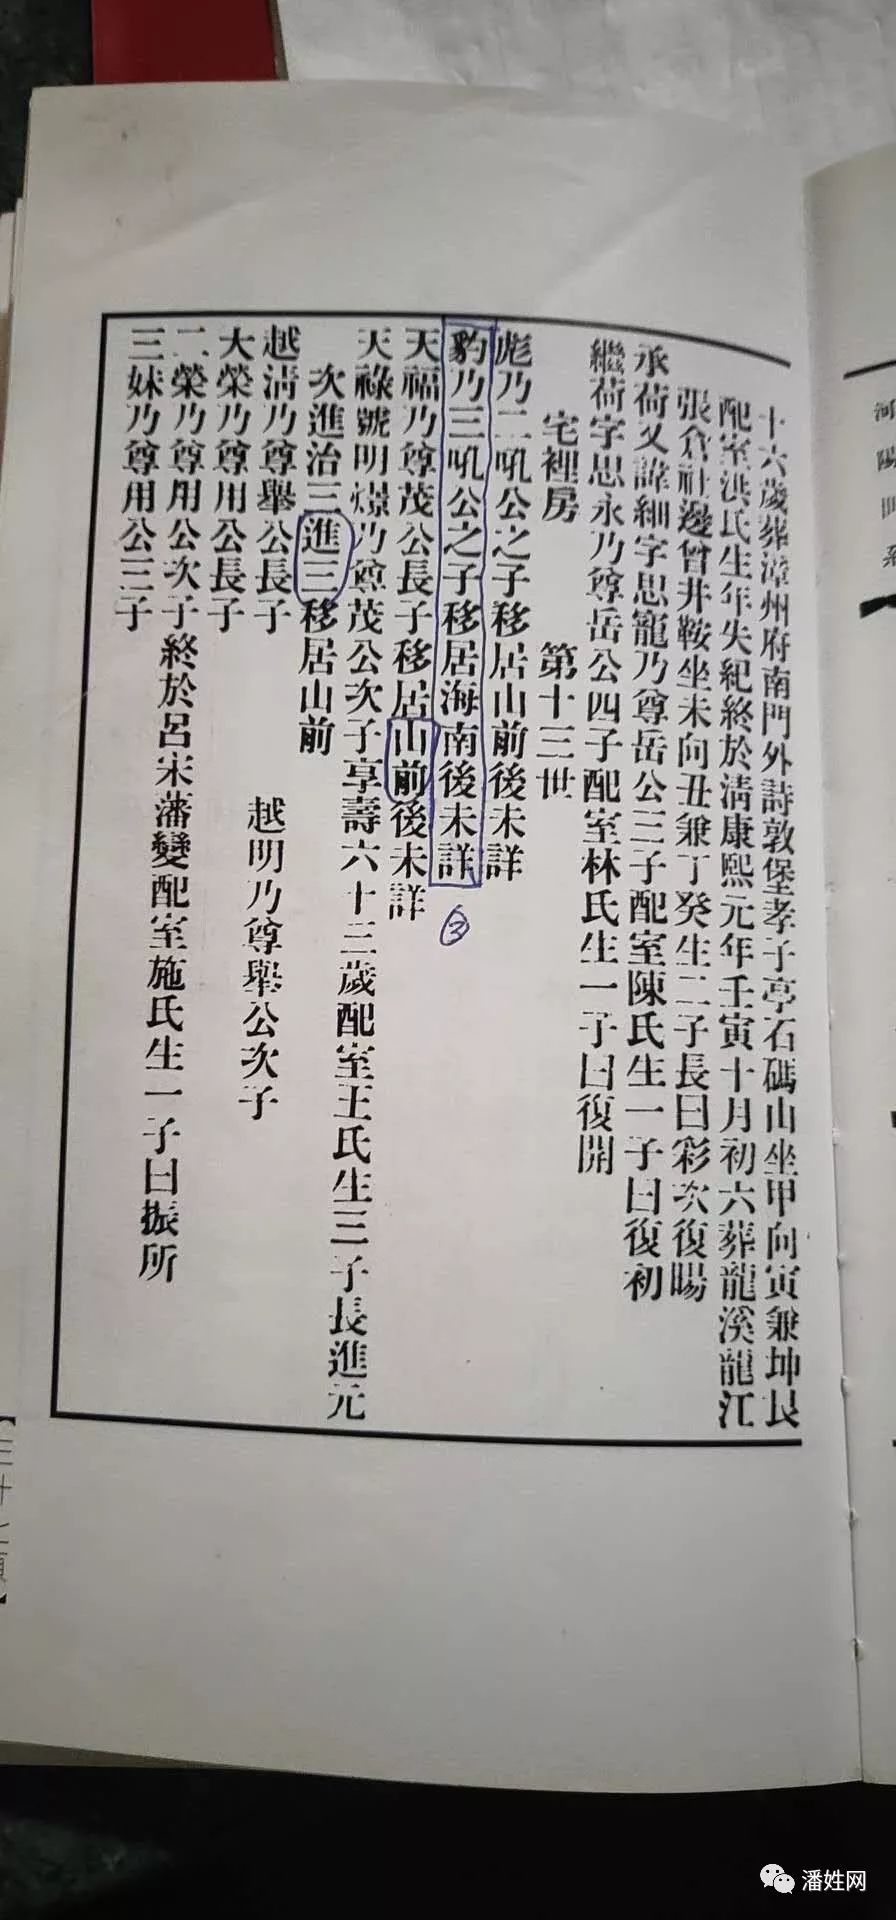 十六歲葬漳州府南門外詩敦堡孝子亭石碼山坐甲向寅兼坤艮
配室洪氏生年失紀終於清康熙元年壬寅十月初六葬龍溪龍江
張倉社邊曾井鞍坐未向丑兼丁癸生二子長曰彩次復暘
承荷又諱細字思寵乃尊岳公三子配室陳氏生一子曰復初
繼荷字思永乃尊岳公四子配室林氏生一子曰復開
宅裡房 第十三世
彪乃二吼公之子移居山前後未詳
豹乃三吼公之子移居海南後未詳
天福乃尊茂公長子移居山前後未詳
天祿號明燝乃尊茂公次子享壽六十三歲配室王氏生三子長進元
次進治三進三移居山前
越清乃尊舉公長子 越明乃尊舉公次子
大榮乃尊用公長子
二榮乃尊用公次子終於呂宋藩變配室施氏生一子曰振所
三妹乃尊用公三子
③
河陽
潘姓网